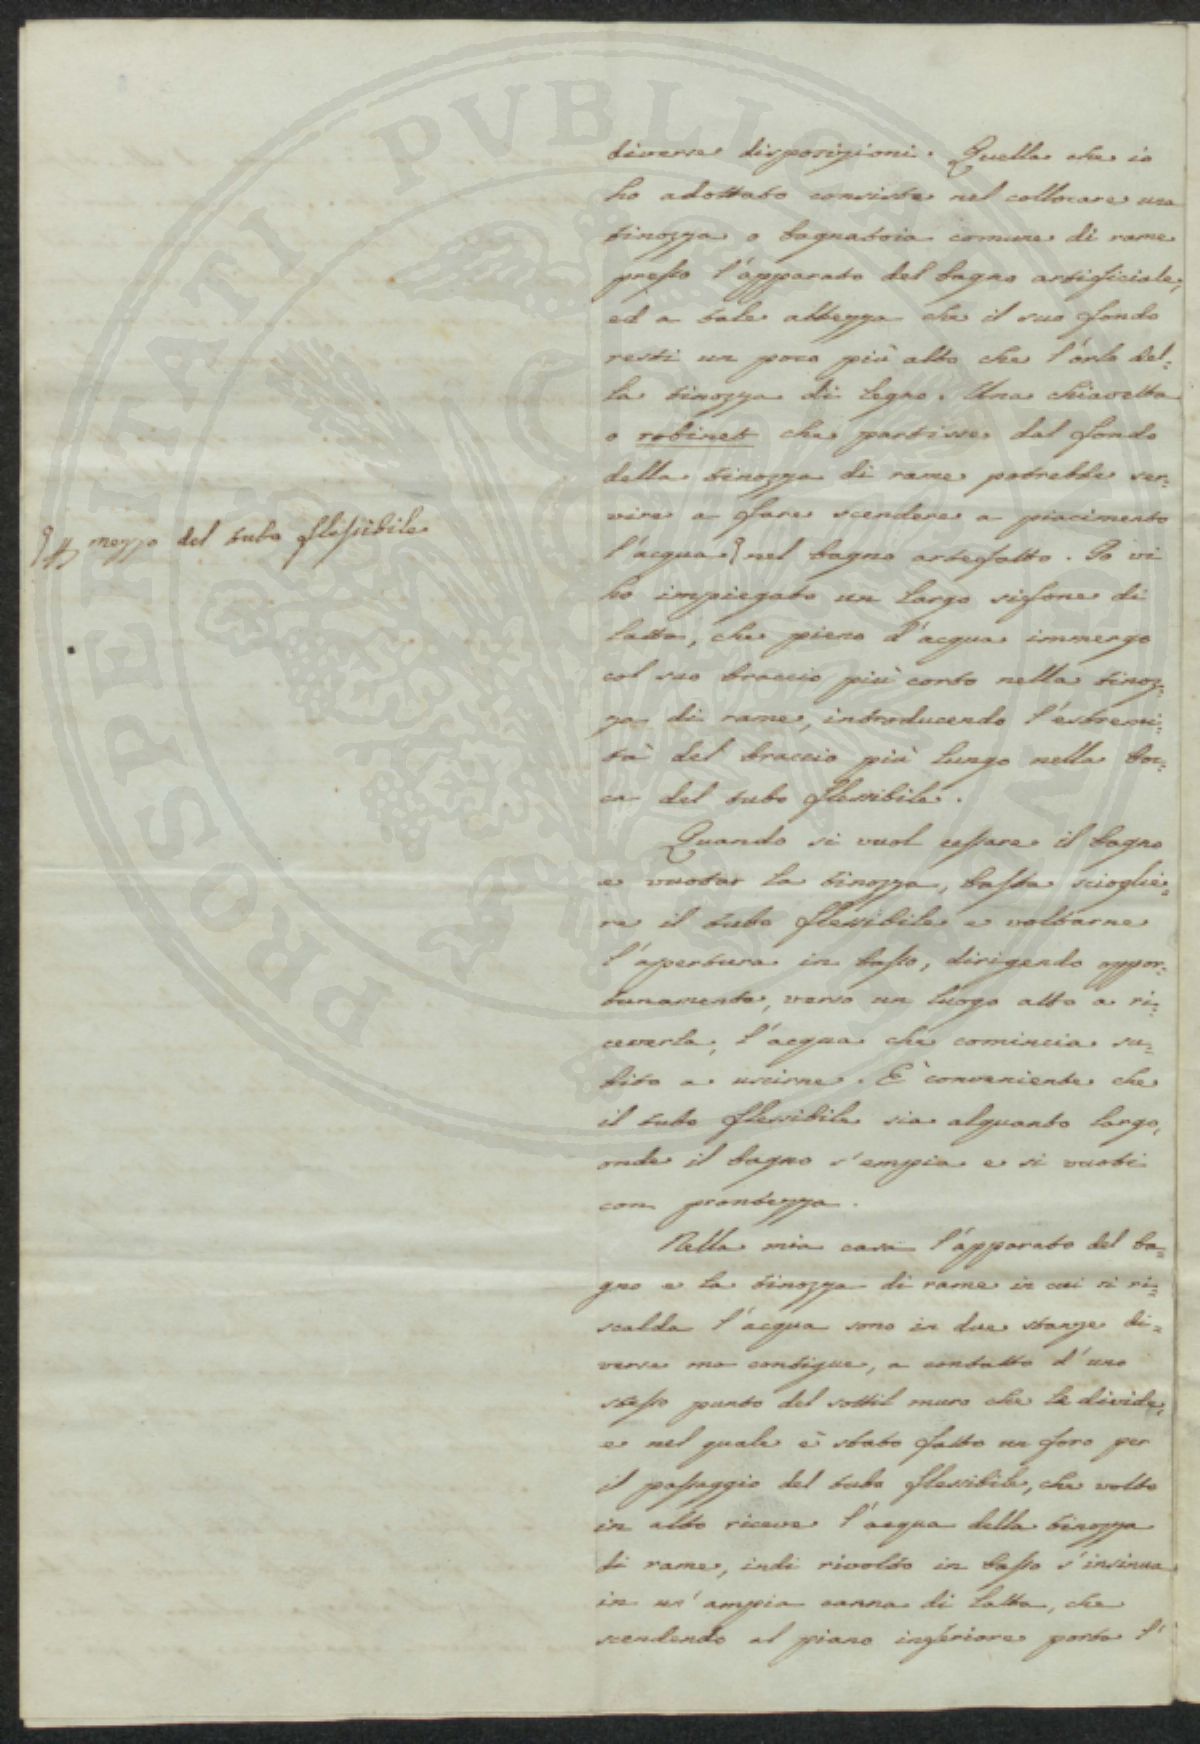 PROSPERITATI PVBLICAE AVGENDAE
diverse disposizioni. Quella che io
ho adottato consiste nel collocare una
tinozza o bagnatoia comune di rame
presso l'apparato del bagno artificiale,
ed a tale altezza che il suo fondo
resti un poco più alto che l'orlo del-
la tinozza di legno. Una chiavetta
o robinet che partisse dal fondo
della tinozza di rame potrebbe ser-
vire a fare scendere a piacimento
l'acqua nel bagno artefatto. Io vi
mezzo del tubo flessibile
ho impiegato un largo sifone di
latta, che pieno d'acqua immergo
col suo braccio più corto nella tinoz-
za di rame, introducendo l'estremi-
tà del braccio più lungo nella boc-
ca del tubo flessibile.
Quando si vuol cessare il bagno
e vuotar la tinozza, basta scioglie-
re il tubo flessibile e voltarne
l'apertura in basso, dirigendo oppor-
tunamente, verso un luogo atto a ri-
ceverla, l'acqua che comincia su-
bito a uscirne. E' conveniente che
il tubo flessibile sia alquanto largo,
onde il bagno s'empia e si vuoti
con prontezza.
Nella mia casa l'apparato del ba-
gno e la tinozza di rame in cui si ri-
scalda l'acqua sono in due stanze di-
verse ma contigue, a contatto d'uno
stesso punto del sottil muro che le divide,
e nel quale è stato fatto un foro per
il passaggio del tubo flessibile, che volto
in alto riceve l'acqua della tinozza
di rame, indi rivolto in basso s'insinua
in un'ampia canna di latta, che
scendendo al piano inferiore porta l'